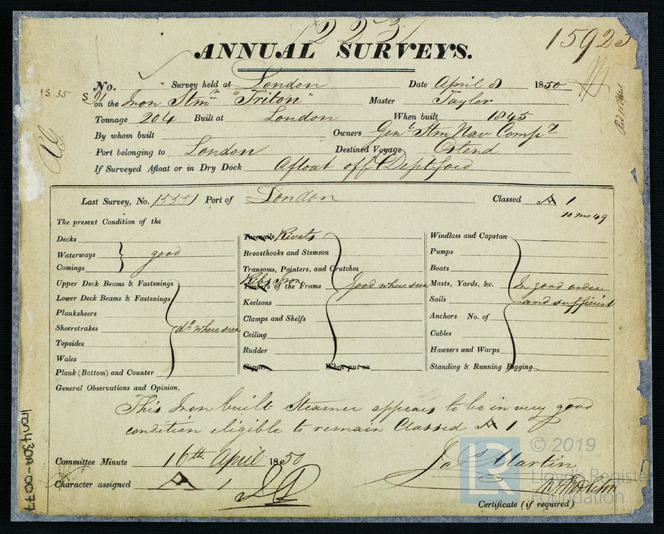 223
15923
ANNUAL SURVEYS.
No. Survey held at London Date April 8 1850
1535
on the Iron Stmr "Triton" Master Taylor
Tonnage 204 Built at London When built 1845
By whom built Owners Genl Stm Nav Compy
Port belonging to London Destined Voyage Ostend
If Surveyed Afloat or in Dry Dock Afloat off Deptford
Last Survey, No. Port of London Classed A 1
10 mo 49
The present Condition of the
Decks
Waterways
Comings
good
Upper Deck Beams & Fastenings
Lower Deck Beams & Fastenings
Planksheers
Sheerstrakes
Topsides
Wales
Plank (Bottom) and Counter
Do where seen
Treenails Rivets
Breasthooks and Stemson
Transoms, Pointers, and Crutches
Timbers of the Frame
Ribs Iron
Keelsons
Clamps and Shelfs
Ceiling
Rudder
Copper When put on
Good where seen
Windlass and Capstan
Pumps
Boats
Masts, Yards, &c.
Sails
Anchors No. of
Cables
Hawsers and Warps
Standing & Running Rigging
In good order
and sufficient
General Observations and Opinion,
This Iron built Steamer appears to be in very good
condition eligible to remain Classed A 1
Committee Minute 16th April 1850
Character assigned A 1
Martin
Certificate (if required)
Iron430A-0077
© 2019
Lloyd's Register
Foundation